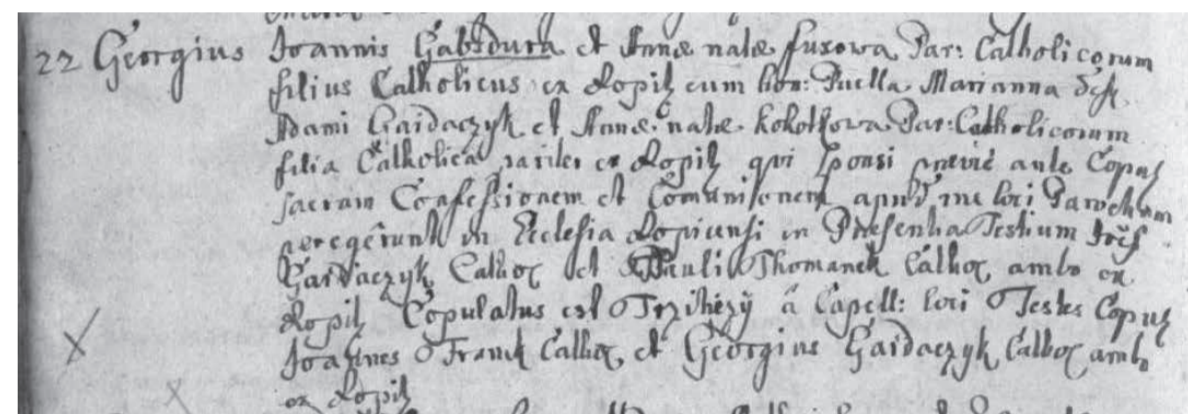 22 Georgius Joannis Gabzdura et Annæ natæ Fuxowa Par: Catholicorum
filius Catholicus ex Ropitz cum hon: Puella Marianna
Adami Gaidaczyk et Annæ natæ Kokotkowa Par: Catholicorum
filia Catholica pariter ex Ropitz qui Sponsi prævie ante Copul
sacram Confessionem et Comunionem apud me loci Parochum
peregerunt in Ecclesia Ropicensi in Præsentia Testium
Gaidaczyk Cathoc et Pauli Thomanek Cathoc ambo ex
Ropitz Copulatus est Trzitézÿ â Capell: loci Testes Copul
Joannes Franek Cathoc et Georgius Gaidaczyk Cathoc ambo
ex Ropitz